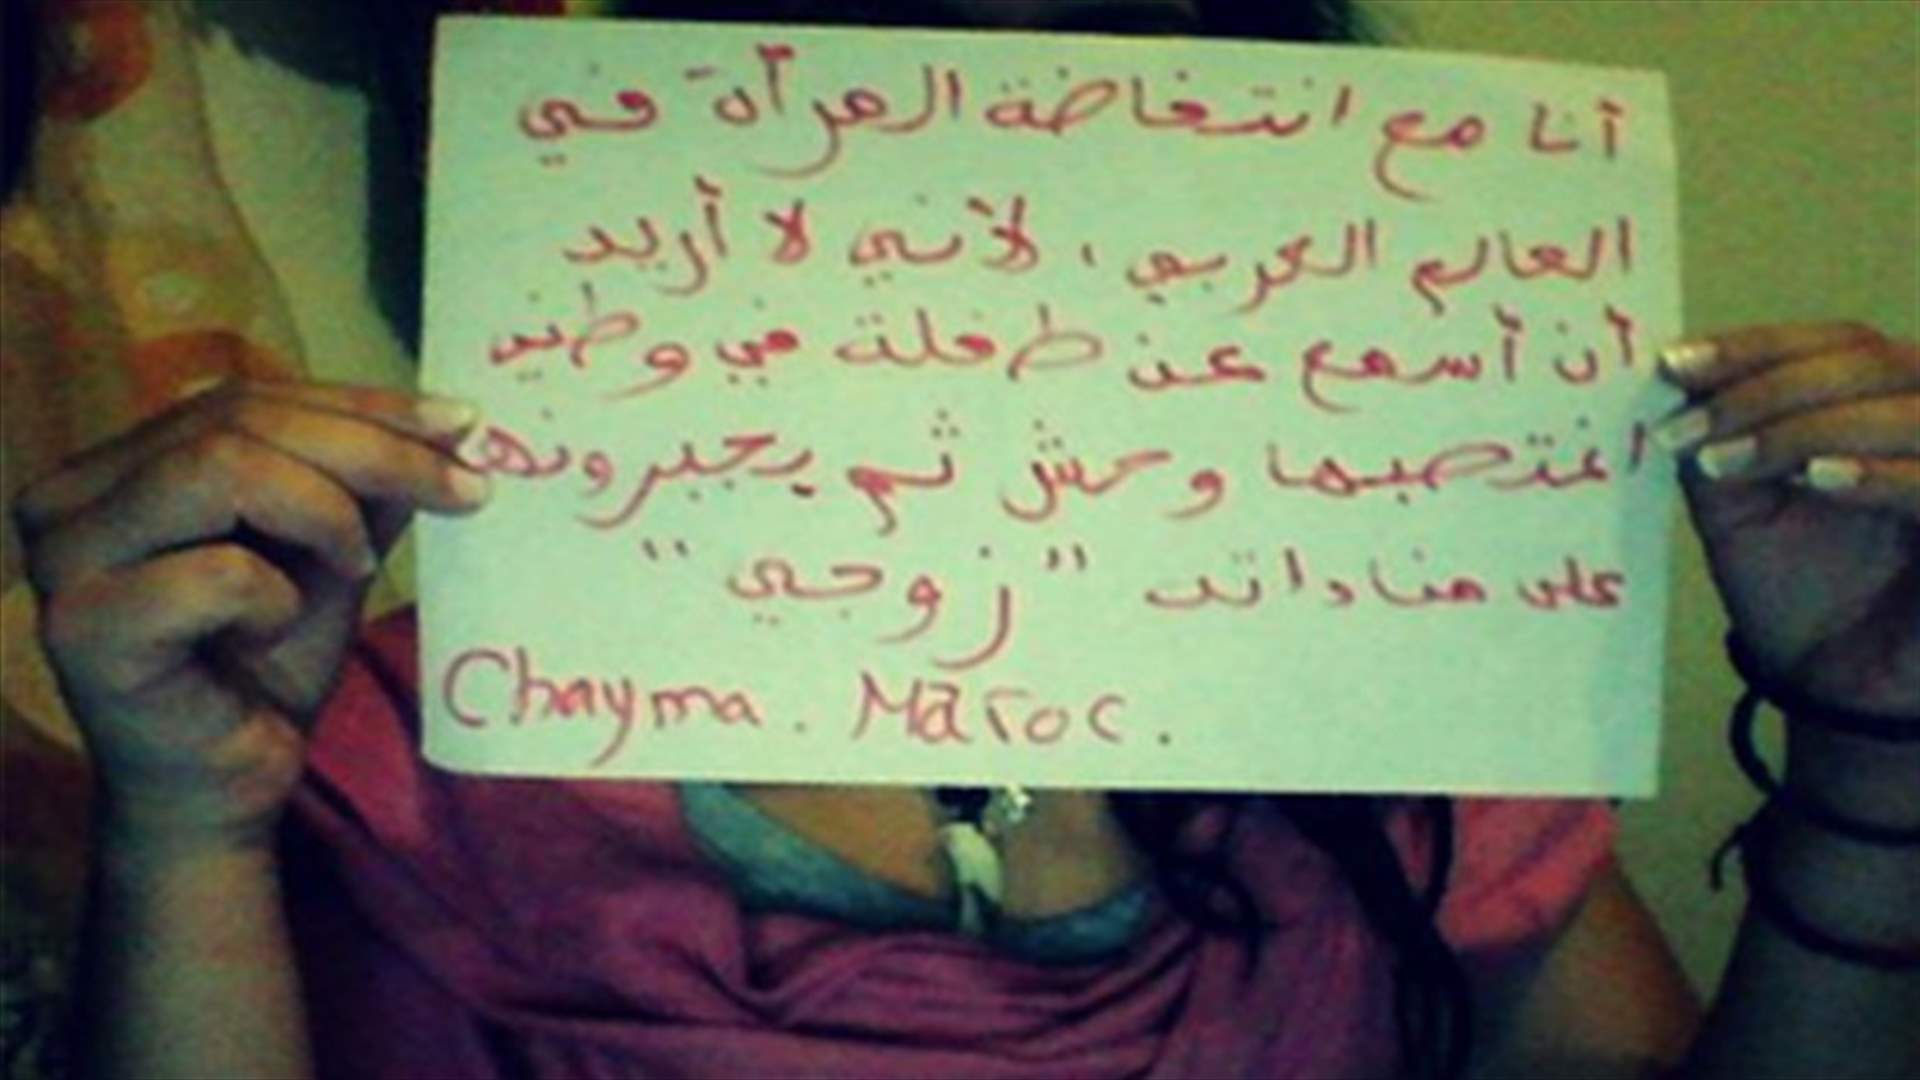 أنا مع انتفاضة المرأة في
العالم العربي، لأنني لا أريد
أن أسمع عن طفلة في وطني
اغتصبها وحش ثم يجبرونها
على مناداته "زوجي"
Chayma. Maroc.